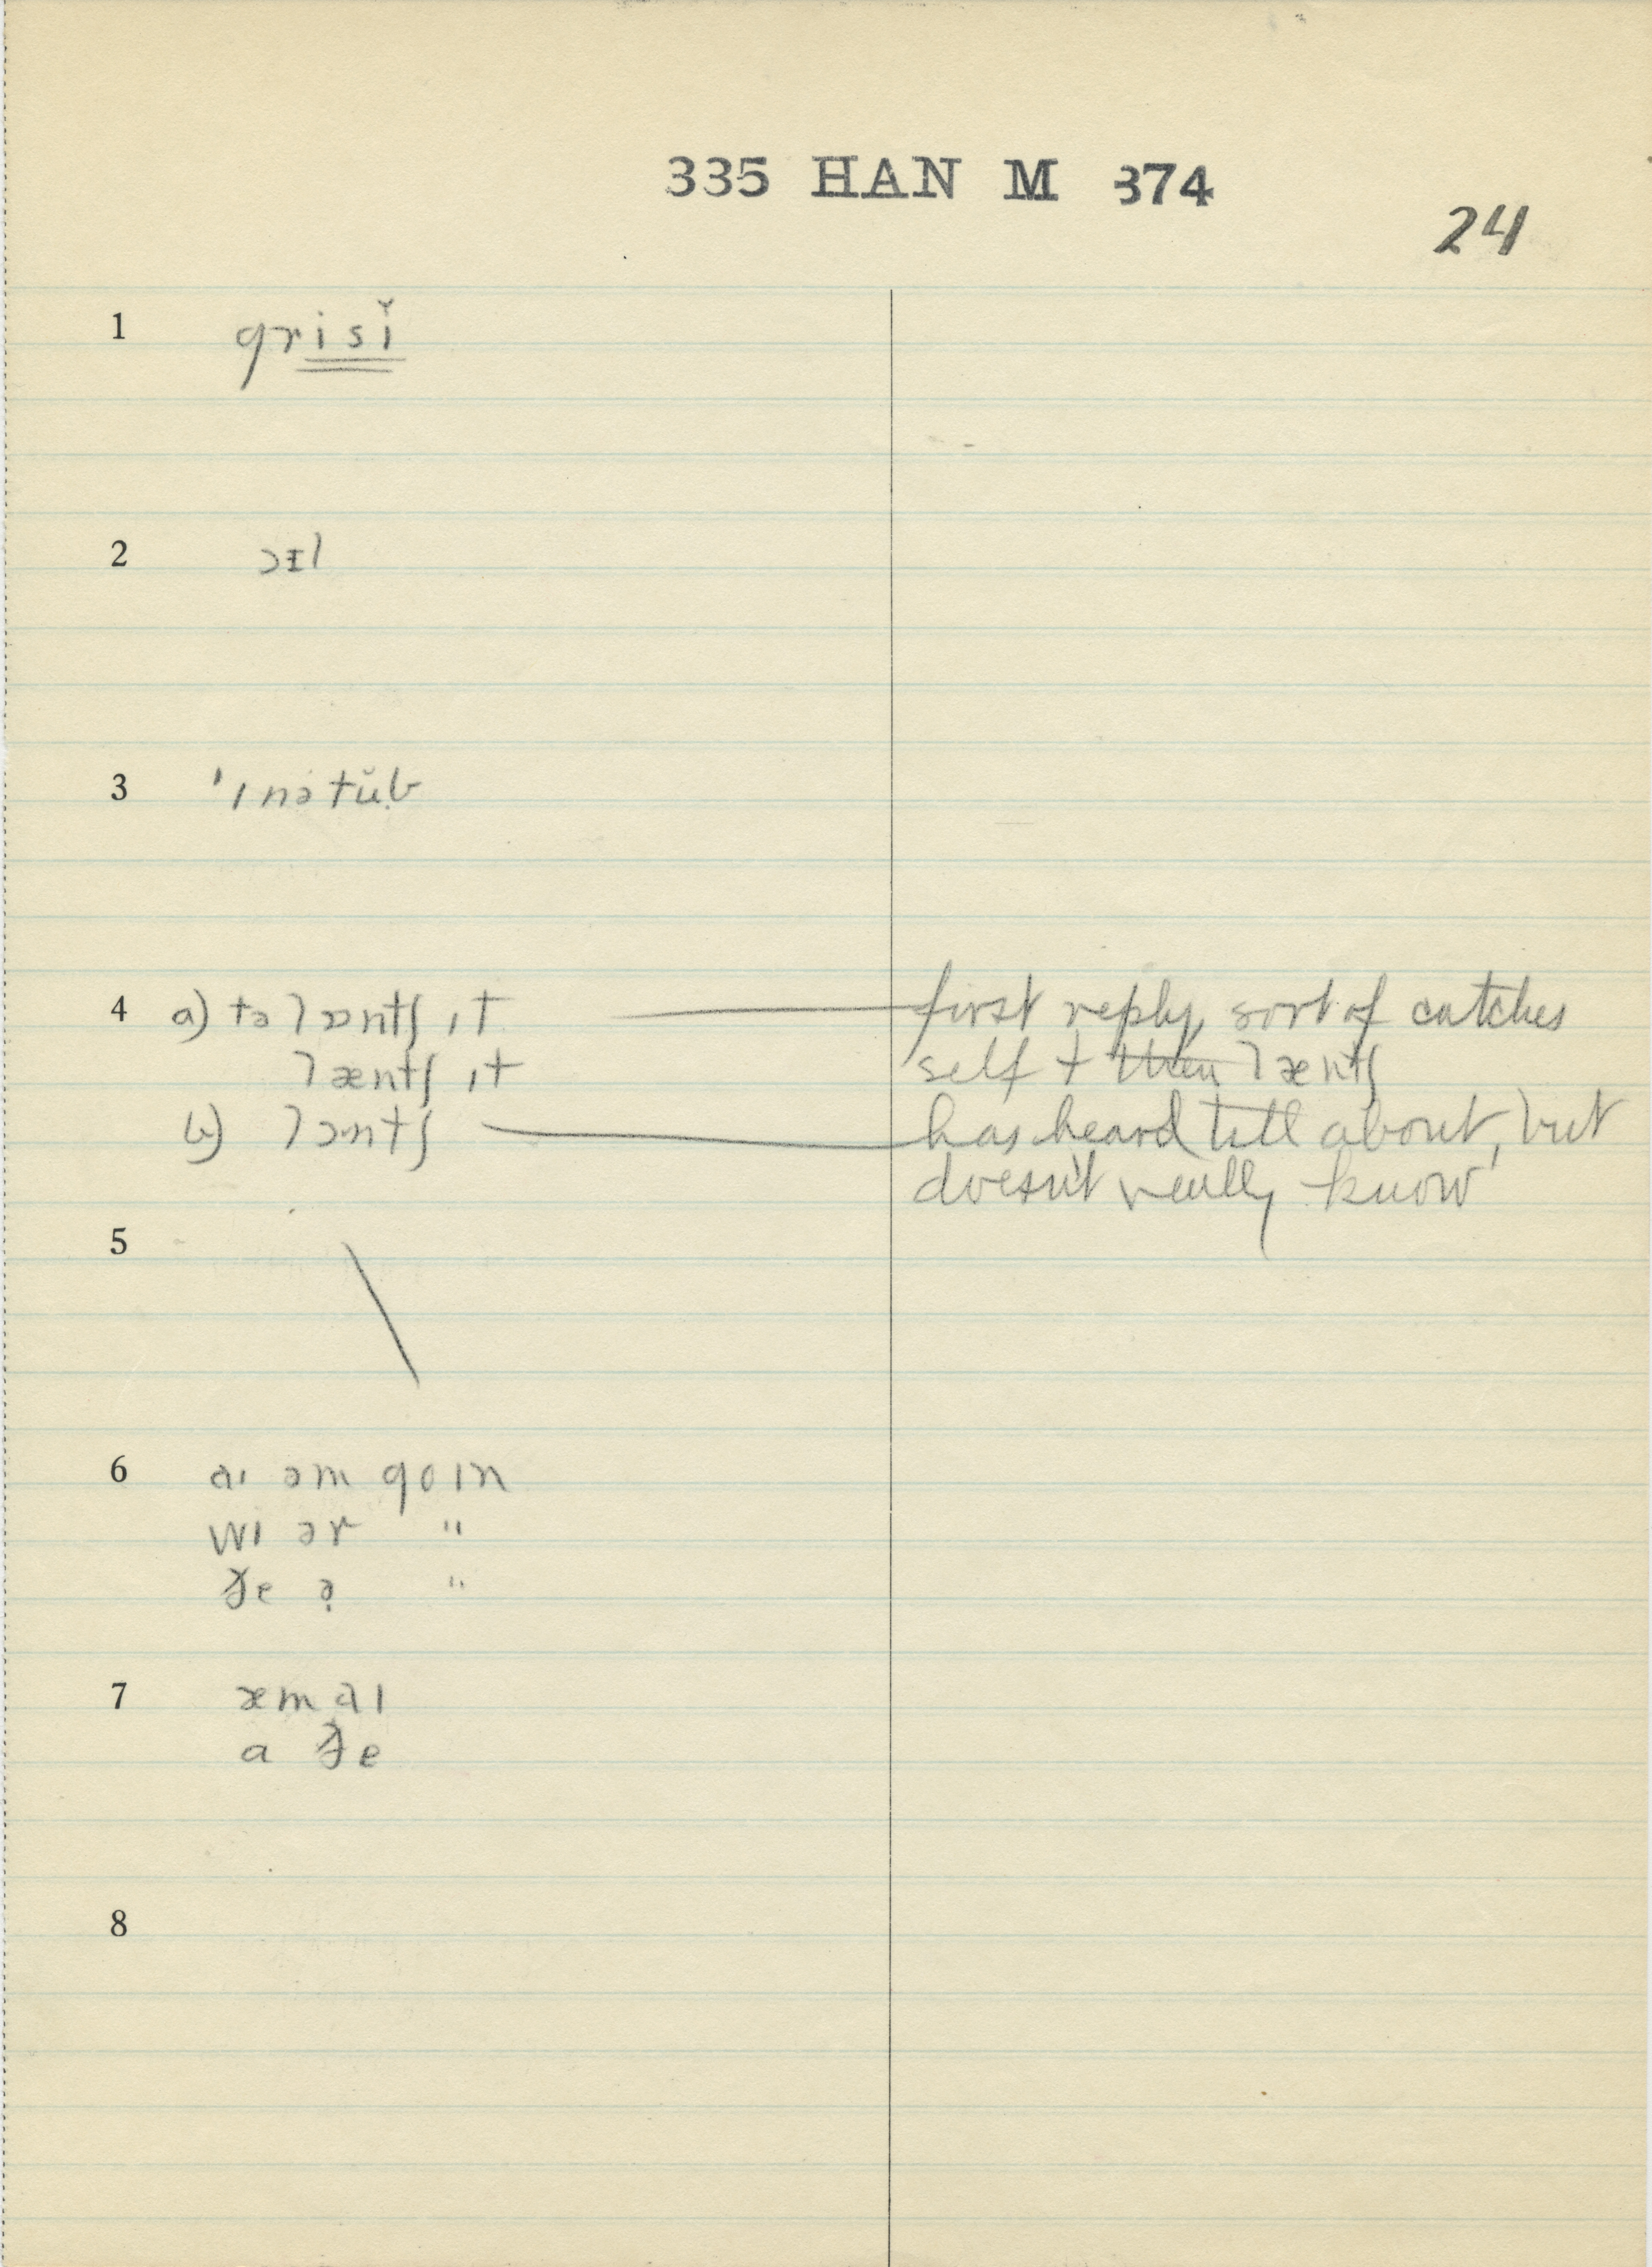 335 HAN M 374
24
1 grisǐ
2 ɔɪl
3 'ɪnətŭb
4 a) tə lɒntʃ ɪt first reply, sort of catches
læntʃ ɪt self + then læntʃ
b) lɔntʃ has heard tell about, but
doesn't really know
5
6 aɪ əm goɪn
wɪ ər "
ðe ə̣ "
7 æm aɪ
a ðe
8